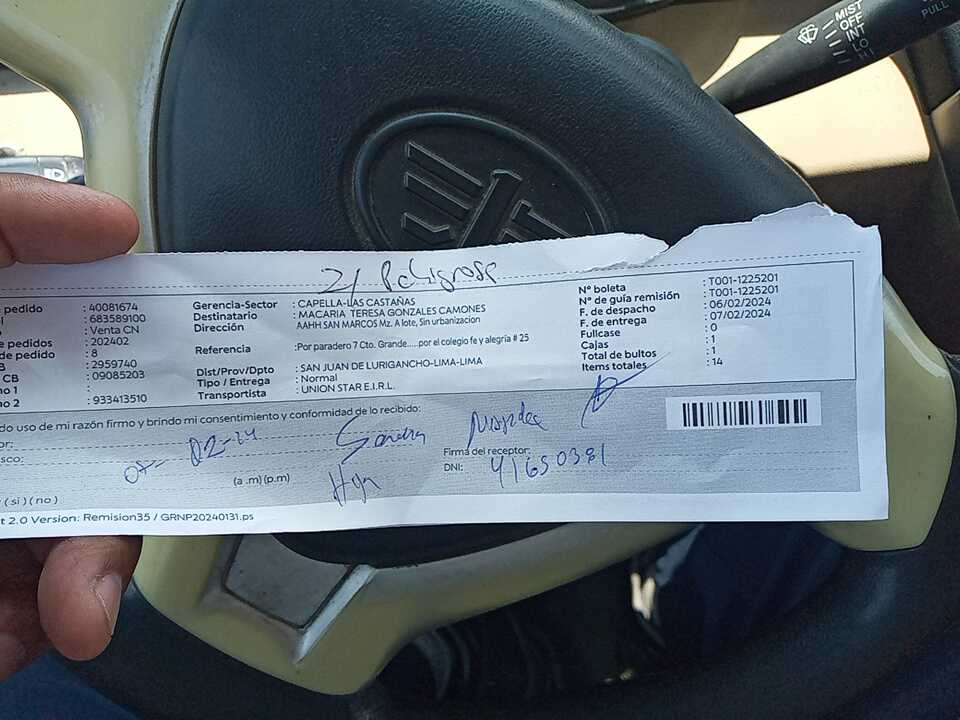 MIST
OFF
INT
LO
HI
PULL
2/ Peligrosa
pedido : 40081674
: 683589100
: Venta CN
pedidos : 202402
de pedido : 8
: 2959740
CB : 09085203
no 1 :
no 2 : 933413510
Gerencia-Sector : CAPELLA-LAS CASTAÑAS
Destinatario : MACARIA TERESA GONZALES CAMONES
Dirección AAHH SAN MARCOS Mz. A lote, Sin urbanizacion
Referencia :Por paradero 7 Cto. Grande.....por el colegio fe y alegría # 25
Dist/Prov/Dpto : SAN JUAN DE LURIGANCHO-LIMA-LIMA
Tipo / Entrega : Normal
Transportista : UNION STAR E.I.R.L.
N° boleta : T001-1225201
N° de guía remisión : T001-1225201
F. de despacho : 06/02/2024
F. de entrega : 07/02/2024
Fullcase : 0
Cajas : 1
Total de bultos : 1
Items totales : 14
do uso de mi razón firmo y brindo mi consentimiento y conformidad de lo recibido:
or:
sco:
07-02-24
(a .m) (p.m)
Hija
Firma del receptor:
DNI: 41650381
( si ) ( no )
t 2.0 Version: Remision35 / GRNP20240131.ps